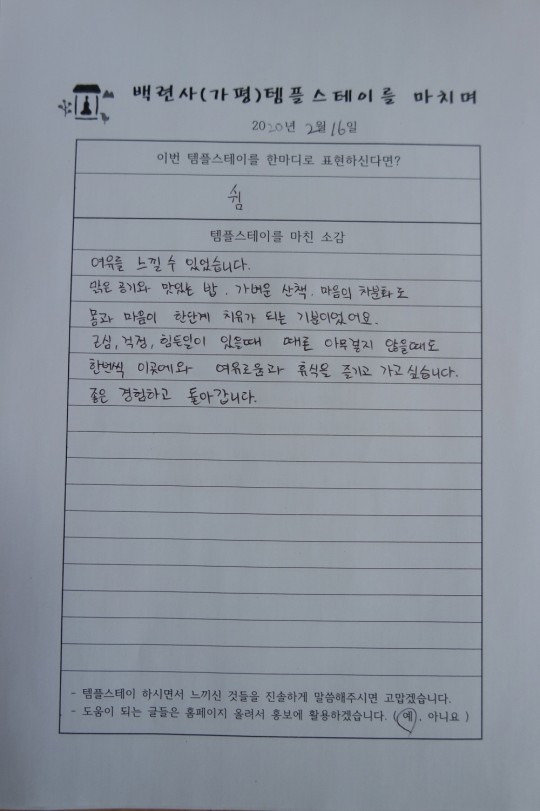 백련사(가평)템플스테이를 마치며
2020년 2월 16일
이번 템플스테이를 한마디로 표현하신다면?
쉼
템플스테이를 마친 소감
여유를 느낄 수 있었습니다.
맑은 공기와 맛있는 밥. 가벼운 산책. 마음의 차분화로
몸과 마음이 한단계 치유가 되는 기분이었어요.
근심, 걱정, 힘든일이 있을때 때론 아무렇지 않을때도
한번씩 이곳에와 여유로움과 휴식을 즐기고 가고싶습니다.
좋은 경험하고 돌아갑니다.
- 템플스테이 하시면서 느끼신 것들을 진솔하게 말씀해주시면 고맙겠습니다.
- 도움이 되는 글들은 홈페이지 올려서 홍보에 활용하겠습니다. ( 예, 아니요 )